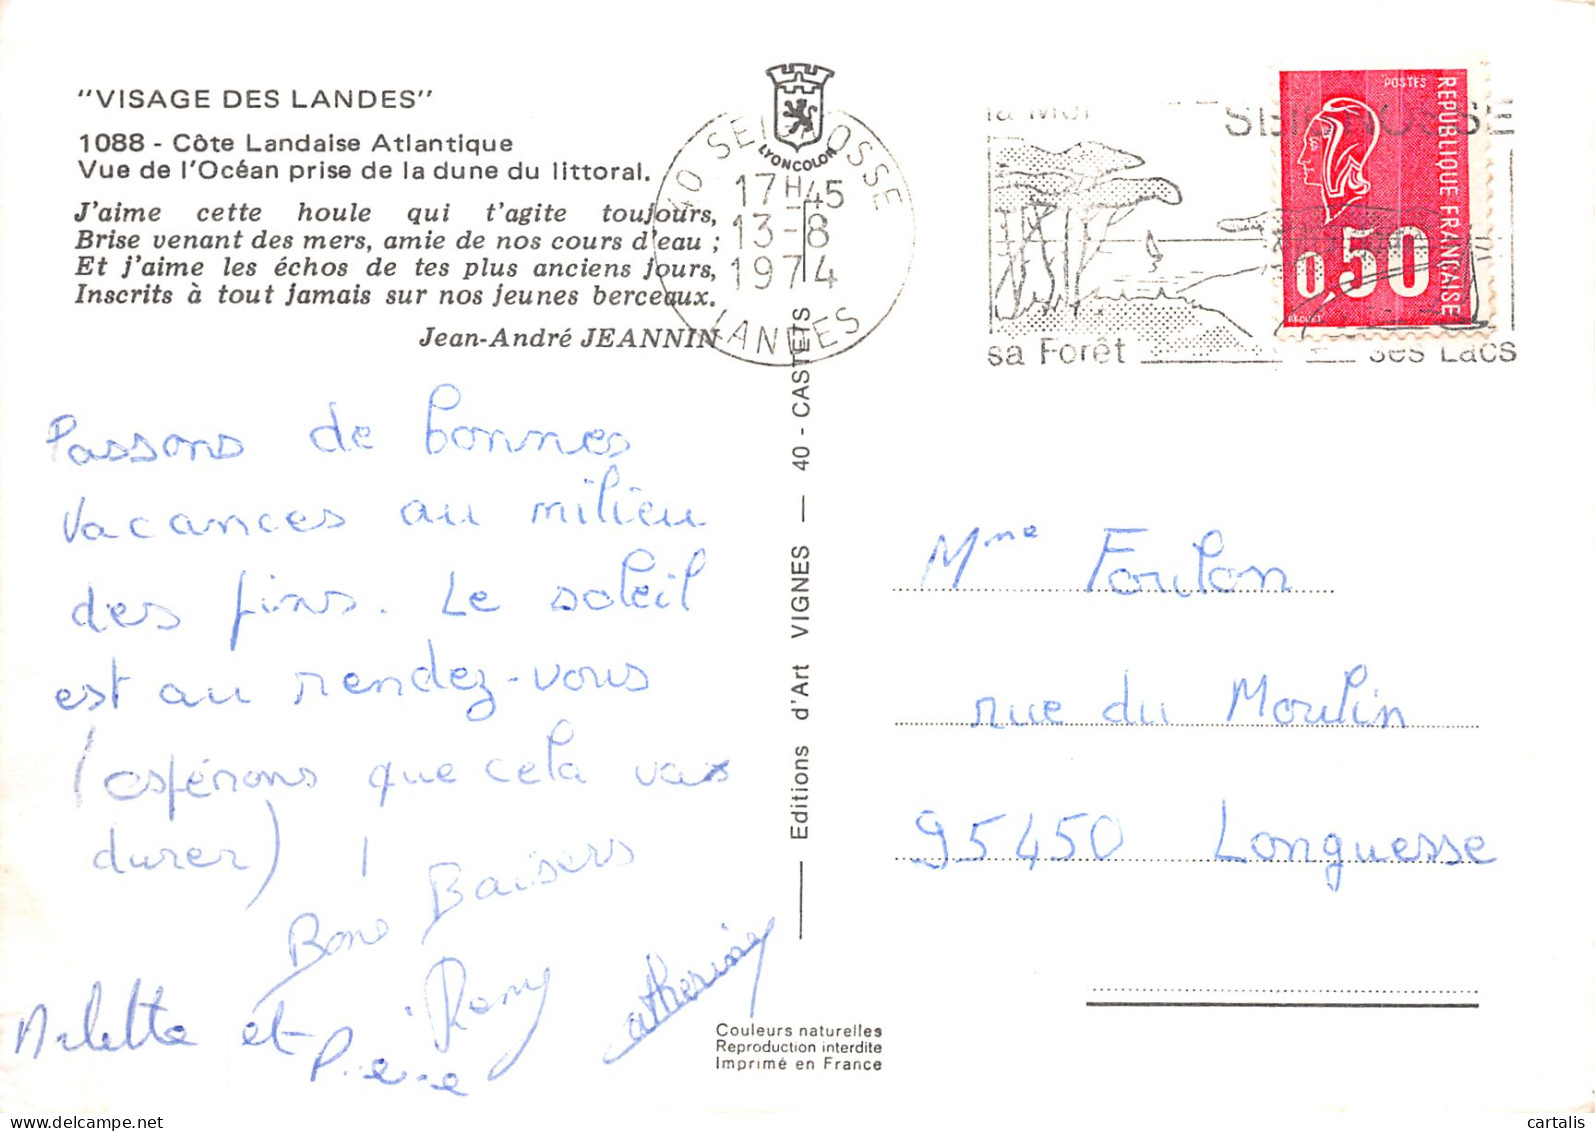 "VISAGE DES LANDES"
1088 - Côte Landaise Atlantique
Vue de l'Océan prise de la dune du littoral.
J'aime cette houle qui t'agite toujours,
Brise venant des mers, amie de nos cours d'eau ;
Et j'aime les échos de tes plus anciens jours,
Inscrits à tout jamais sur nos jeunes berceaux.
Jean-André JEANNIN
Passons de bonnes
vacances au milieu
des pins. Le soleil
est au rendez-vous
(espérons que cela va
durer) !
Bons Baisers
Arlette et
Pierre
Romy
Catherine
LYONCOLOR
40 SEIGNOSSE
17H45
13-8
1974
LANDES
la Mer
SEIGNOSSE
sa Forêt
ses Lacs
POSTES
REPUBLIQUE FRANÇAISE
0,50
BEQUET
Editions d'Art VIGNES — 40 - CASTETS
Mme Foulon
rue du Moulin
95450 Longuesse
Couleurs naturelles
Reproduction interdite
Imprimé en France
delcampe.net
cartalis